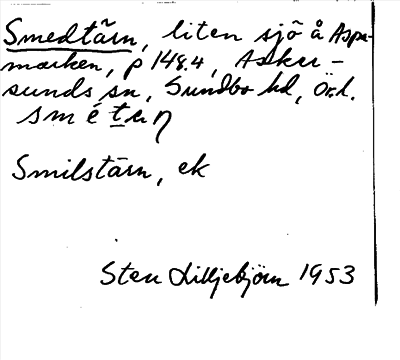 Smedtärn, liten sjö å Aspa-
marken, p 148.4, Asker-
sunds sn, Sundbo hd, Ör.l.
smétεɳ
Smilstärn, ek
Sten Lilljebjörn 1953